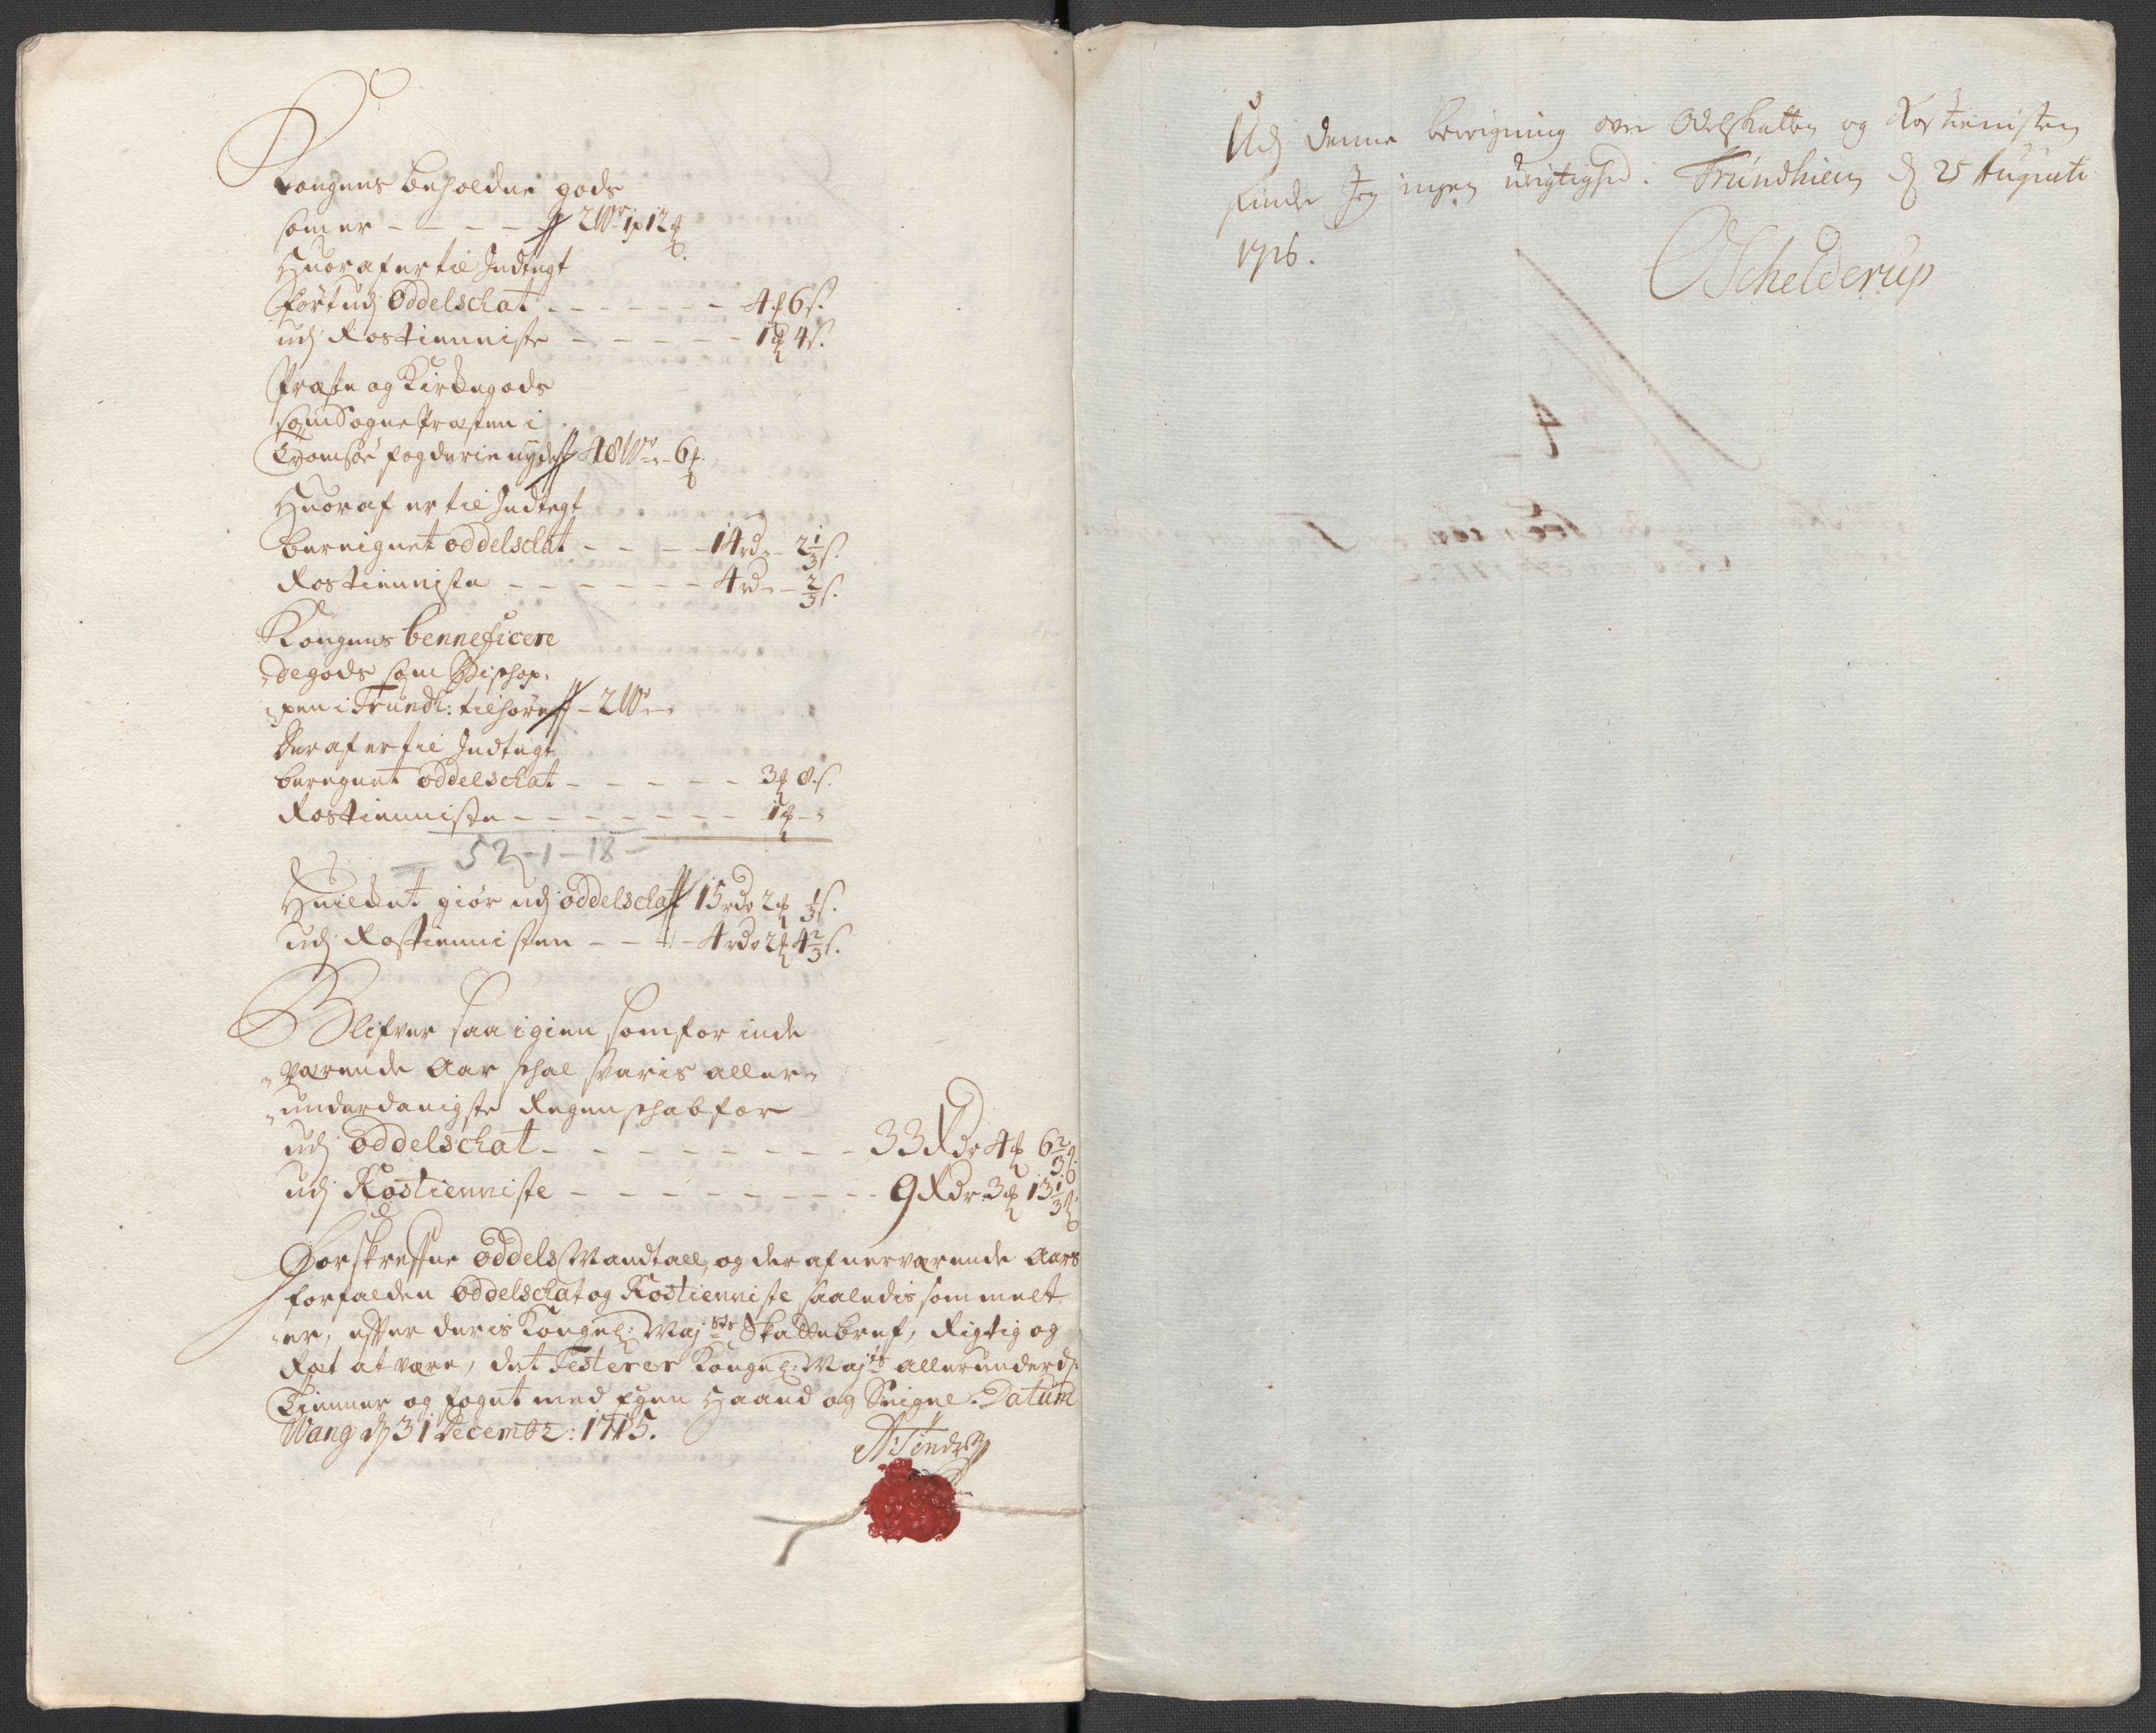 Kongens beholdne gods
som er - - - - 2 W 1 p 12
Huoraf er til Indtegt
ført udj Oddelschat - - - - - - 4 6 s.
udj Rostienniste - - - - - 1 4 s.
Præste og Kirkegods
som Sogne Præsten i
Tromsøe fogderie nyder 48 W - 6
Huoraf er til Indtegt
bereignet oddelschat - - - - 14 rd - 2 1/3 s.
Rostienniste - - - - - - 4 rd - 2/3 s.
Kongens benneficere
degods som Bischop-
pen i Trundh: tilhører - 2 W
Deraf er til Indtegt
beregnet oddelschat - - - - - 3 8 s.
Rostienniste - - - - - - - 1 -
52-1-18
Huilket giør udj oddelschat 15 rdr 2 1/3 s.
udj Rostiennisten - - - 4 rdr 2 4 2/3 s.
Blifver saa igien som for inde
værende Aar schal svaris aller-
underdanigste Regenschab for
udj oddelschat - - - - - - - - 33 Rdr 4 6 2/3
udj Rostienniste - - - - - - - - 9 Rdr 3 13 1/3
Forskrefne oddels Mandtall, og der af nerværende Aars
forfalden oddelschat og Rostienniste saaledis som melt
er, efter deris Kongel: Maj sts Skattebref, Rigtig og
Ret at være, det Testerer Kongel: Maj ts allerunderd:
Tienner og fogut med Egen Haand og Seigne. Datum
Wang d 31 Decembr: 1715.
Udj denne bereigning over Odelskatten og Rostienisten
finder Jeg ingen urigtighed. Trundhiem d 25 Augusti
1716.
Schelderup